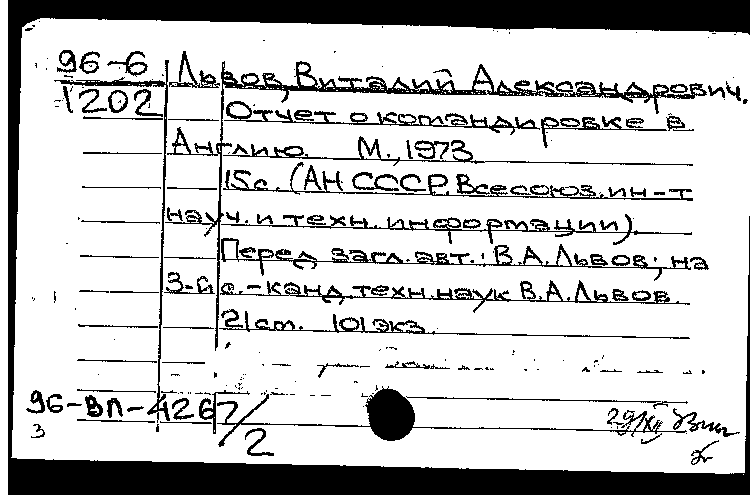 96-6 Львов, Виталий Александрович.
1202 Отчет о командировке в
Англию. М., 1973.
15с. (АН СССР. Всесоюз. ин-т
науч. и техн. информации).
Перед загл. авт.: В.А. Львов; на
3-й с. - канд. техн. наук В.А. Львов.
21 см. 101 экз.
96-ВП-4267/2
29/XII
3